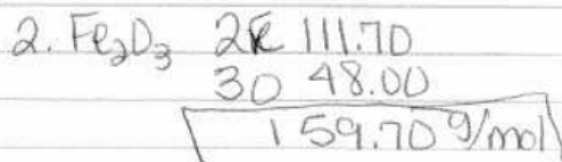 2. Fe₂O₃ 2Fe 111.70
3O 48.00
159.70 g/mol